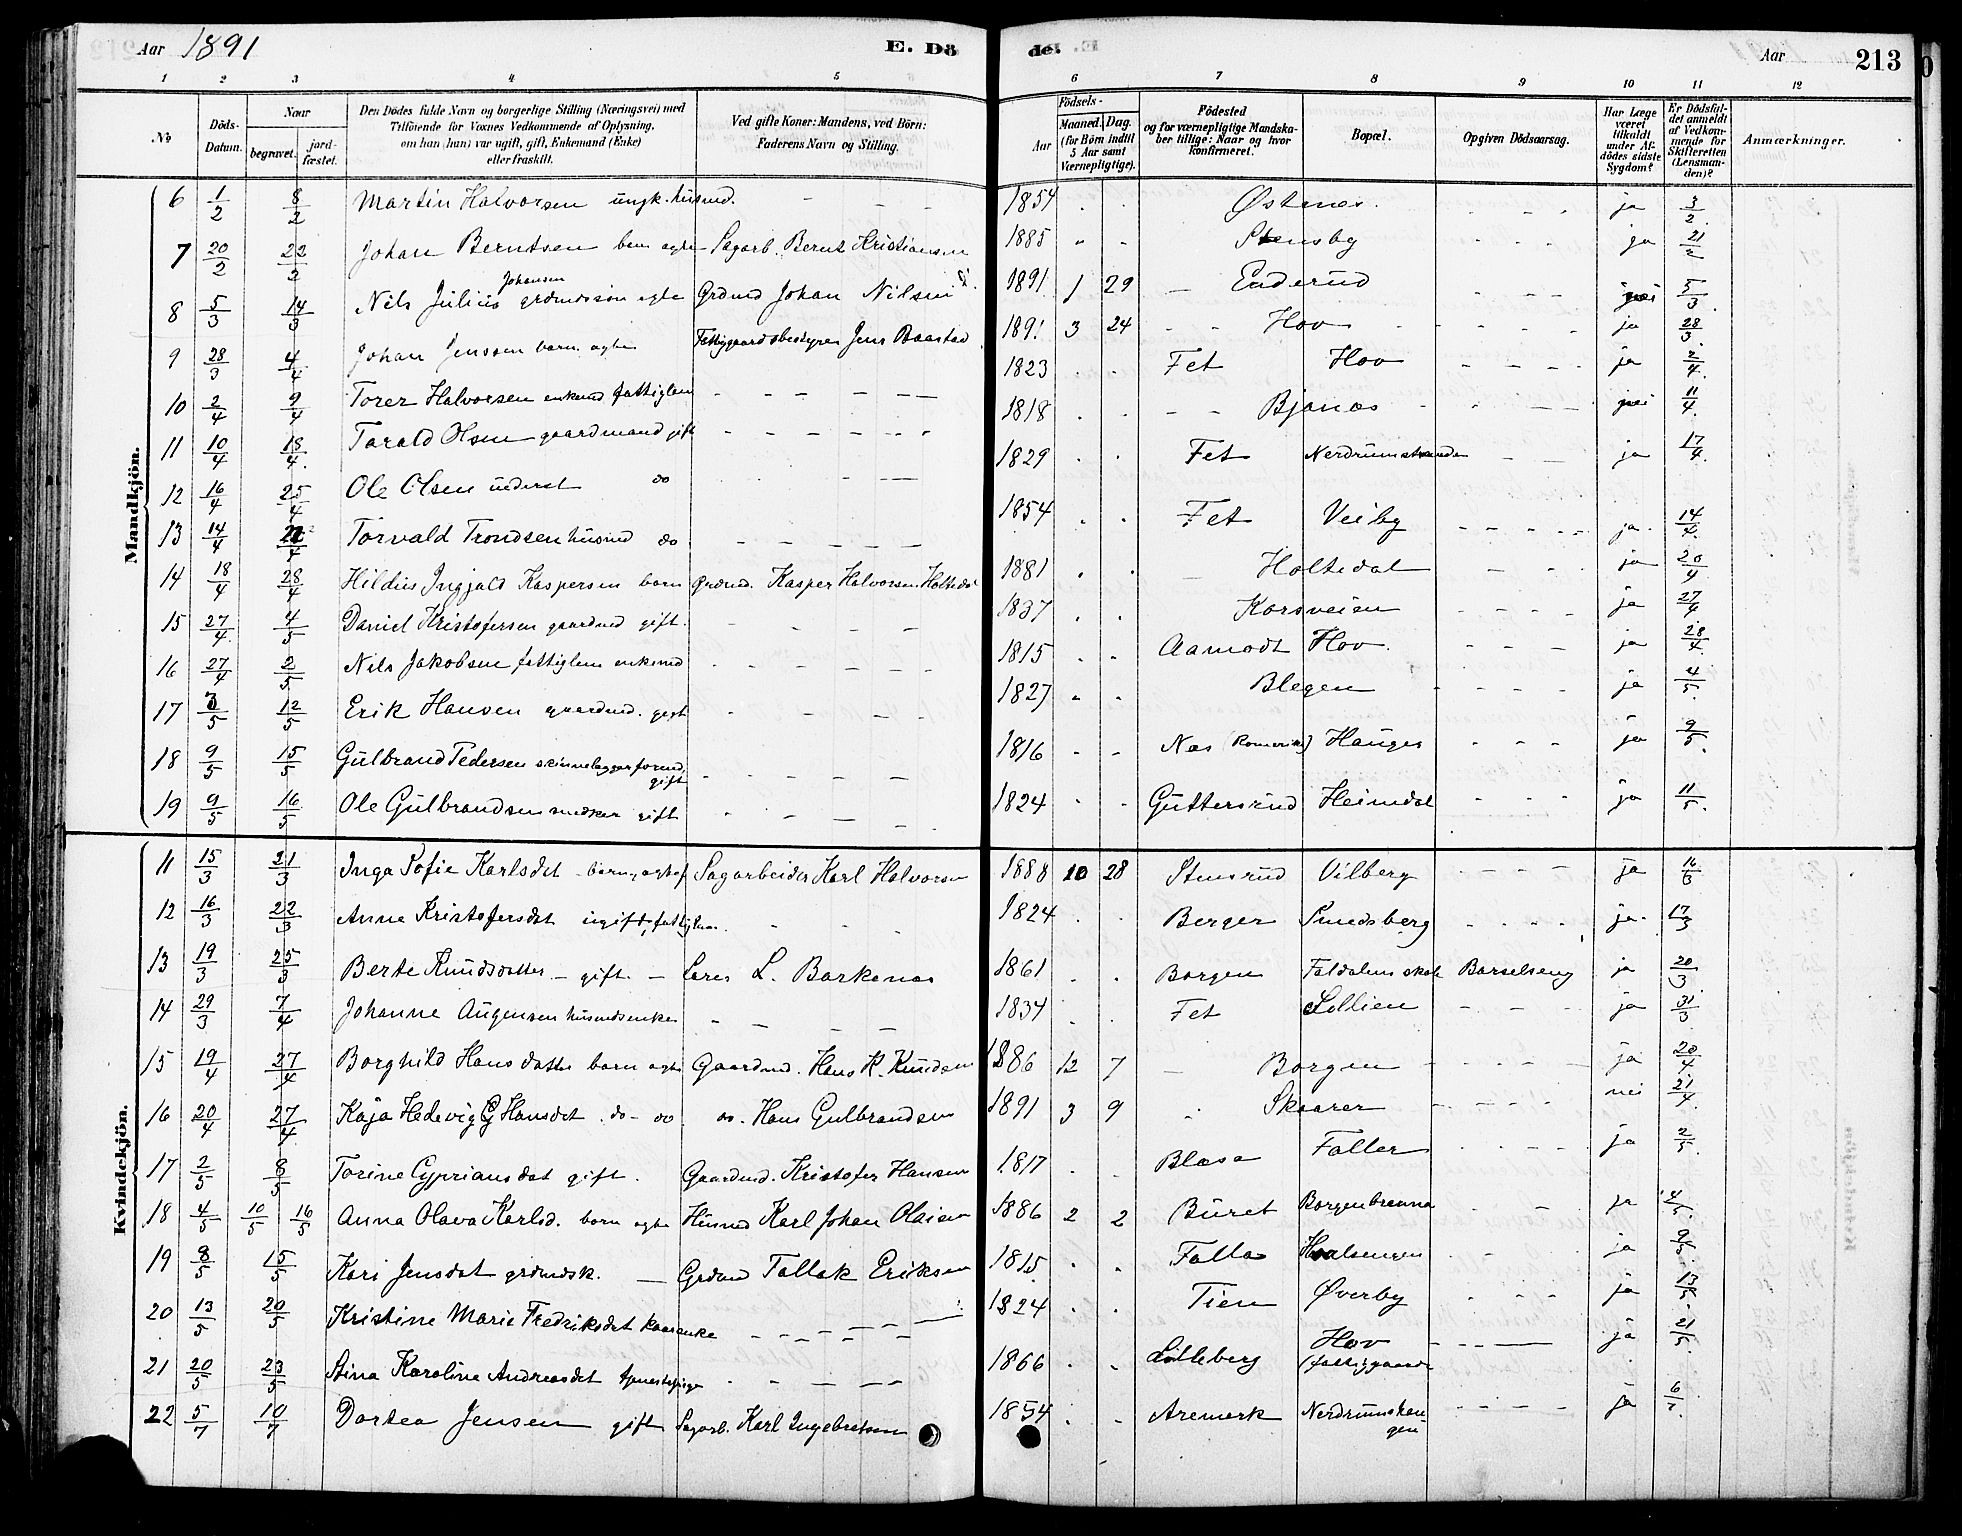 Aar 1891 E. Dö
de. E. Aar 213
1 2 3 4 5 6 7 8 9 10 11 12
No
Döds-Datum.
Naar begravet. jordfæstet.
Den Dödes fulde Navn og borgerlige Stilling (Næringsvei) med
Tilföiende for Voxnes Vedkommende af Oplysning,
om han (hun) var ugift, gift, Enkemand (Enke)
eller fraskilt.
Ved gifte Koner: Mandens, ved Börn:
Faderens Navn og Stilling.
Födsels-
Aar Maaned. Dag.
(for Börn indtil 5 Aar samt Værnepligtige).
Födested
og for værnepligtige Mandskaber tillige: Naar og hvor konfirmeret.
Bopæl.
Opgiven Dödsaarsag.
Har Læge været tilkaldt under Afdödes sidste Sygdom?
Er Dödsfaldet anmeldt af Vedkommende for Skifteretten (Lensmanden)?
Anmærkninger.
Mandkjön.
6 1/2 8/2 Martin Halvorsen ungk. husmd. 1854 Østenes ja 3/2
7 20/2 22/2 Johan Berntsen barn ægte Sagarb. Bernt Kristiansen 1885 Stensby ja 21/2
8 5/3 14/3 Nils Julius Johansen grdmdssøn ægte Grdmd Johan Nilsen 1891 1 29 Enderud nei 5/3
9 28/3 4/4 Johan Jenssen barn ægte Fattiggaardsbestyrer Jens Baastad 1891 3 24 Hov ja 28/3
10 2/4 9/4 Torer Halvorsen enkemd fattiglem 1823 Fet Hov ja 2/4
11 10/4 18/4 Tarald Olsen gaardmand gift 1818 Bjanes nei 11/4
12 16/4 25/4 Ole Olsen inderst do 1829 Fet Nerdrumstranden ja 17/4
13 14/4 22/4 Torvald Trondsen husmd do 1854 Fet Veiby ja 14/4
14 18/4 28/4 Hildus Ingjald Kaspersen barn Grdmd. Kasper Halvorsen Holtedal 1881 Holtedal ja 20/4
15 27/4 4/5 Daniel Kristofersen gaardmd gift 1837 Korsveien ja 27/4
16 27/4 2/5 Nils Jakobsen fattiglem enkemd 1815 Aamodt Hov ja 28/4
17 3/5 12/5 Erik Hansen gaardmd. gift 1827 Blegen ja 4/5
18 9/5 15/5 Gulbrand Pedersen skinnelæggerformd. gift 1816 Nes (Romerike) Hauger ja 9/5
19 9/5 16/5 Ole Gulbrandsen snedker gift 1824 Guttersrud Heimdal ja 11/5
Kvindekjön.
11 15/3 21/3 Inga Sofie Karlsdat barn, ægtef Sagarbeider Karl Halvorsen 1888 10 28 Stensrud Vilberg ja 16/3
12 16/3 22/3 Anne Kristofersdat ugift, fattiglem 1824 Berger Smedsberg ja 17/3
13 19/3 25/3 Berte Knudsdatter - gift - Lærer L. Barkenæs 1861 Borgen Faldalens skole Barselseng ja 20/3
14 29/3 7/4 Johanne Augensen husmdsenke 1834 Fet Lollien ja 31/3
15 19/4 27/4 Borghild Hansdatter barn ægte Gaardmd. Hans K. Knudsen 1886 12 7 Borgen ja 20/4
16 20/4 27/4 Kaja Hedevig G Hansdat do - do do. Hans Gulbrandsen 1891 3 9 Skaarer nei 21/4
17 2/5 8/5 Torine Cypriansdat gift. Gaardmd. Kristofer Hansen 1817 Blasa Faller ja 2/5
18 4/5 10/5 16/5 Anna Olava Karlsd. barn ægte Husmd Karl Johan Olaisen 1886 2 2 Buret Borgenbrænna ja 4/5
19 8/5 15/5 Kari Jensdat grdmdsk. - Grdmd Tallak Eriksen 1815 Falla Hvalsengen ja 9/5
20 13/5 20/5 Kristine Marie Fredriksdat kaarenke 1824 Tien Øverby ja 13/5
21 20/5 23/5 Stina Karoline Andreasdat tjenestepige 1866 Lilleberg Hov (fattiggaard) ja 21/5
22 5/7 10/7 Dortea Jensen gift Sagarb. Karl Ingebretsen 1854 Aremark Nerdrumshaugen ja 6/7